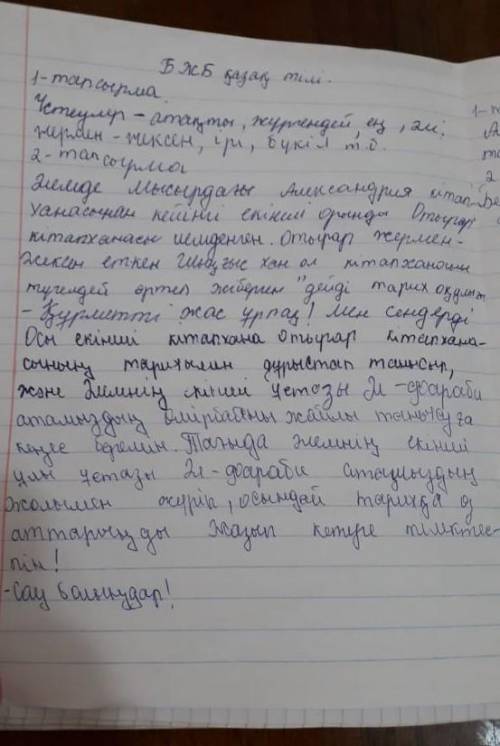 БЖБ қазақ тілі.
1-тапсырма.
Үстеулер - атақты, жүргендей, ең, әлі,
жермен-жексен, ірі, бүкіл т.б.
2-тапсырма
Әлемде Мысырдағы Александрия кітап-
ханасынан кейінгі екінші орынды Отырар
кітапханасы иемденген. Отырар жермен-
жексен еткен Шыңғыс хан ол кітапхананы
түгелдей өртеп жіберген" дейді тарих
- Құрметті жас ұрпақ! Мен сендерді
Осы екінші кітапхана Отырар кітапхана-
сының тарихымен дұрыстап танысып,
және Әлемнің екінші ұстазы Әл-фараби
атамыздың өмірбаяны жайлы танысуға
кеңес беремін. Тағыда әлемнің екінші
ұлы ұстазы Әл-фараби атамыздың
жолымен жүріп, осындай тарихқа өз
аттарыңды жазып кетуге тілектес-
пін!
- Сау болыңдар!
1-т
А
та
2